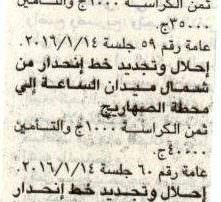 ثمن الكراسة ١٠٠٠ج والتأمين
٣٥٠٠٠ج.
عامة رقم ٥٩ جلسة ٢٠١٦/١/١٤.
إحلال وتجديد خط إنحدار من
شمال ميدان الساعة إلي
محطة الصهاريج
ثمن الكراسة ١٠٠٠ج والتأمين
٤٠٠٠٠ج.
عامة رقم ٦٠ جلسة ٢٠١٦/١/١٤.
إحلال وتجديد خط إنحدار